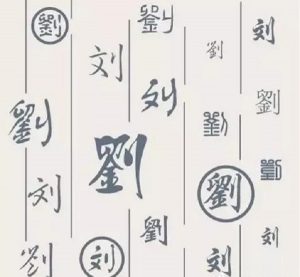 劉
劉
刘
劉
刘
劉
刘
劉
刘
劉
劉
劉
劉
刘
刘
劉
劉
刘